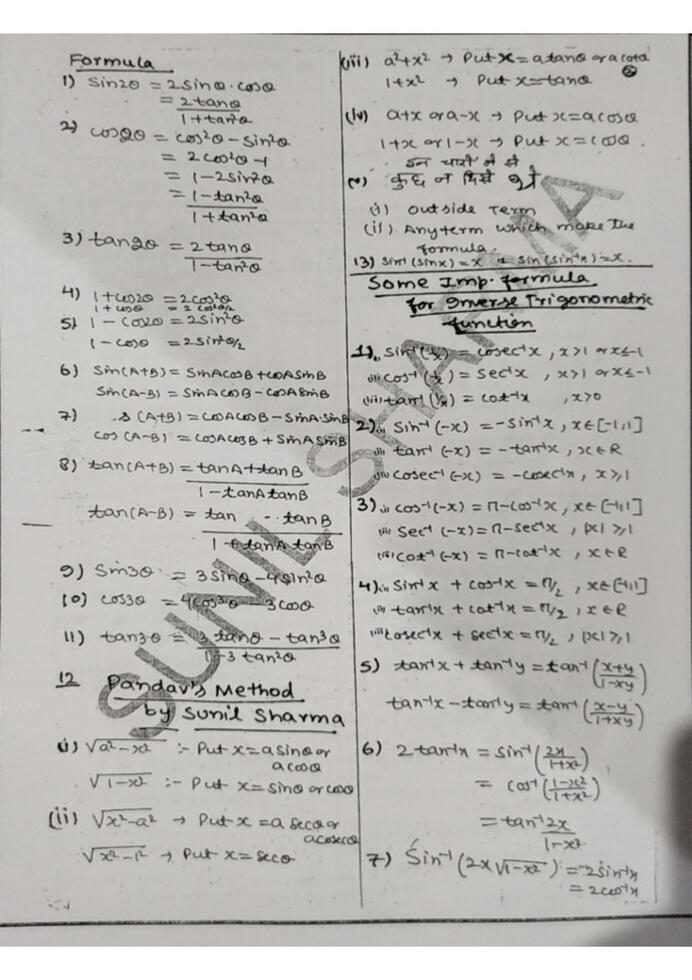 Formula
1) Sin2θ = 2sinθ.cosθ
= 2tanθ
1+tan²θ
2) cos2θ = cos²θ-sin²θ
= 2cos²θ-1
= 1-2sin²θ
= 1-tan²θ
1+tan²θ
3) tan2θ = 2tanθ
1-tan²θ
4) 1+cos2θ = 2cos²θ
1+cosθ = 2cos²θ/2
5) 1-cos2θ = 2sin²θ
1-cosθ = 2sin²θ/2
6) Sin(A+B) = SinAcosB+cosASinB
Sin(A-B) = SinAcosB-cosASinB
7) s(A+B) = cosAcosB-SinA.SinB
cos(A-B) = cosAcosB+SinASinB
8) tan(A+B) = tanA+tanB
1-tanAtanB
tan(A-B) = tan - tanB
1+tanA tanB
9) Sin3θ = 3Sinθ-4Sin²θ
10) cos3θ = 4cos³θ-3cosθ
11) tan3θ = 3tanθ-tan³θ
1-3tan²θ
12 Pandav's Method
by Sunil Sharma
(i) √a²-x² :- Put x=asinθ or
acosθ
√1-x² :- Put x=sinθ or cosθ
(ii) √x²-a² → Put x=a secθ or
acosecθ
√x²-1² → Put x=secθ
(iii) a²+x² → Put x=atanθ or acotθ
1+x² → Put x=tanθ
(iv) a+x or a-x → Put x=acosθ
1+x or 1-x → Put x=cosθ.
इन चारो में से
(v) कुछ न दिखे तो
(i) outside Term
(ii) Anyterm which make the
formula.
13) Sin⁻¹(sinx)=x & sin(sin⁻¹x)=x.
Some Imp. formula
for Inverse Trigonometric
function
1) (i) Sin⁻¹(1/x) = cosec⁻¹x, x>1 or x≤-1
(ii) cos⁻¹(1/x) = Sec⁻¹x, x>1 or x≤-1
(iii) tan⁻¹(1/x) = cot⁻¹x, x>0
2) (i) Sin⁻¹(-x) = -Sin⁻¹x, x∈[-1,1]
(ii) tan⁻¹(-x) = -tan⁻¹x, x∈R
(iii) cosec⁻¹(-x) = -cosec⁻¹x, x≥1
3) (i) cos⁻¹(-x) = π-cos⁻¹x, x∈[-1,1]
(ii) Sec⁻¹(-x) = π-sec⁻¹x, |x|≥1
(iii) cot⁻¹(-x) = π-cot⁻¹x, x∈R
4) (i) Sin⁻¹x + cos⁻¹x = π/2, x∈[-1,1]
(ii) tan⁻¹x + cot⁻¹x = π/2, x∈R
(iii) cosec⁻¹x + sec⁻¹x = π/2, |x|≥1
5) tan⁻¹x + tan⁻¹y = tan⁻¹(x+y/1-xy)
tan⁻¹x - tan⁻¹y = tan⁻¹(x-y/1+xy)
6) 2tan⁻¹x = sin⁻¹(2x/1+x²)
= cos⁻¹(1-x²/1+x²)
= tan⁻¹ 2x
1-x²
7) Sin⁻¹(2x√1-x²) = 2sin⁻¹x
= 2cos⁻¹x
SUNIL SHARMA